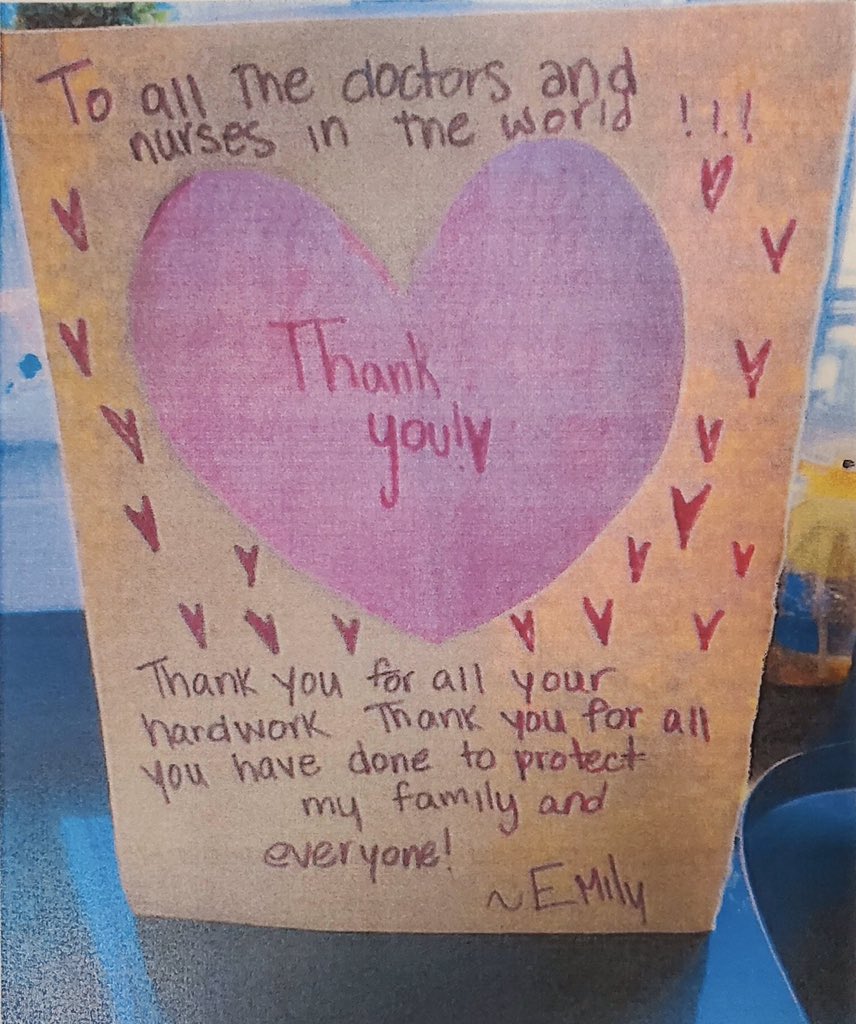 To all The doctors and
nurses in the world !!!
Thank
you!
Thank you for all your
hardwork Thank you for all
you have done to protect
my family and
everyone!
~Emily